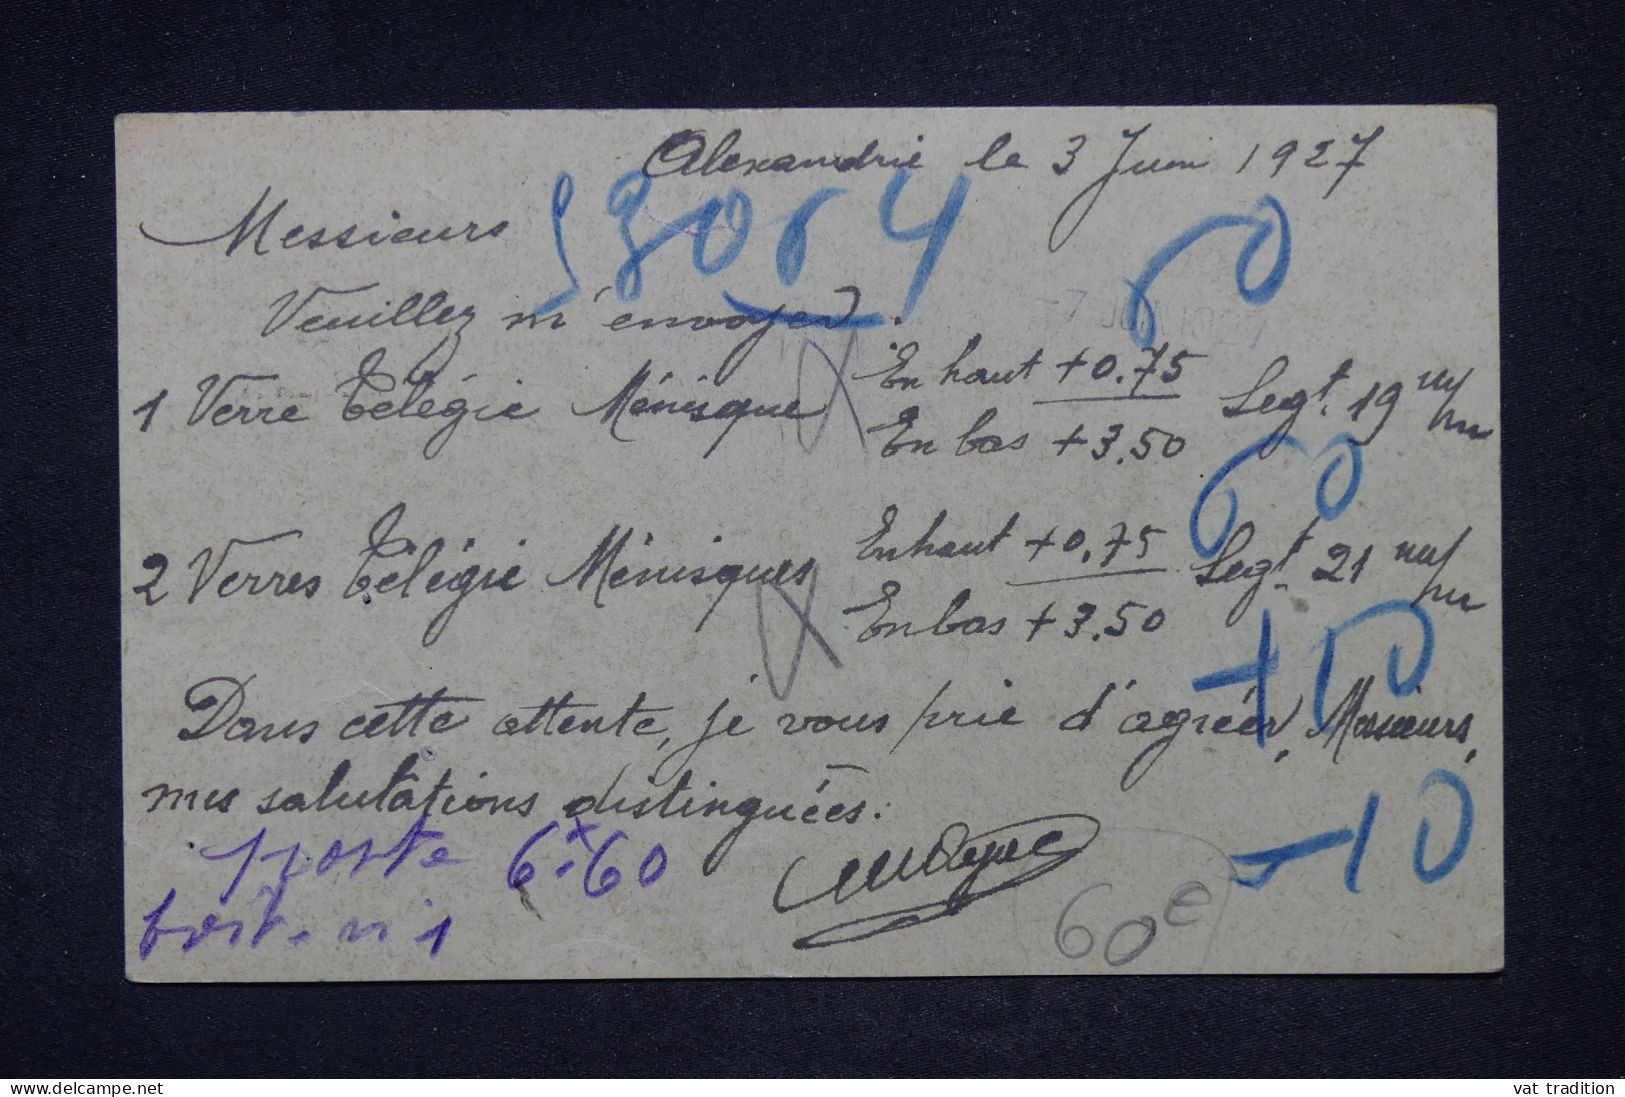 Alexandrie le 3 Juin 1927
Messieurs
Veuillez m'envoyer.
-7 JUIN 1927
60
1 Verre Télégic Ménisque En haut +0.75 Segt. 19 m/m
En bas +3.50
60
2 Verres Télégic Ménisques En haut +0.75 Segt. 21 m/m
En bas +3.50
+10
Dans cette attente, je vous prie d'agréer, Messieurs,
mes salutations distinguées.
-10
poste 6.60
boît. n 1
60e
www.delcampe.net
vat tradition